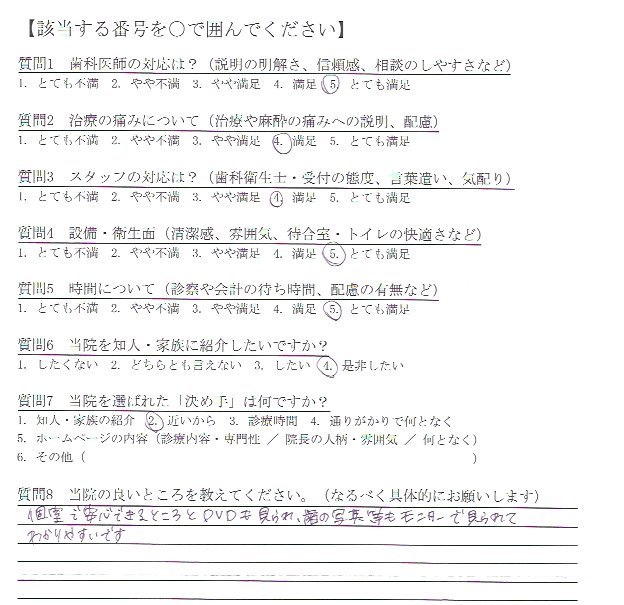 【該当する番号を○で囲んでください】
質問1 歯科医師の対応は？（説明の明解さ、信頼感、相談のしやすさなど）
1. とても不満 2. やや不満 3. やや満足 4. 満足 5. とても満足
質問2 治療の痛みについて（治療や麻酔の痛みへの説明、配慮）
1. とても不満 2. やや不満 3. やや満足 4. 満足 5. とても満足
質問3 スタッフの対応は？（歯科衛生士・受付の態度、言葉遣い、気配り）
1. とても不満 2. やや不満 3. やや満足 4. 満足 5. とても満足
質問4 設備・衛生面（清潔感、雰囲気、待合室・トイレの快適さなど）
1. とても不満 2. やや不満 3. やや満足 4. 満足 5. とても満足
質問5 時間について（診察や会計の待ち時間、配慮の有無など）
1. とても不満 2. やや不満 3. やや満足 4. 満足 5. とても満足
質問6 当院を知人・家族に紹介したいですか？
1. したくない 2. どちらとも言えない 3. したい 4. 是非したい
質問7 当院を選ばれた「決め手」は何ですか？
1. 知人・家族の紹介 2. 近いから 3. 診療時間 4. 通りがかりで何となく
5. ホームページの内容（診療内容・専門性 ／ 院長の人柄・雰囲気 ／ 何となく）
6. その他（ ）
質問8 当院の良いところを教えてください。（なるべく具体的にお願いします）
個室で安心できるところとDVDも見られ、歯の写真等もモニターで見られて
わかりやすいです